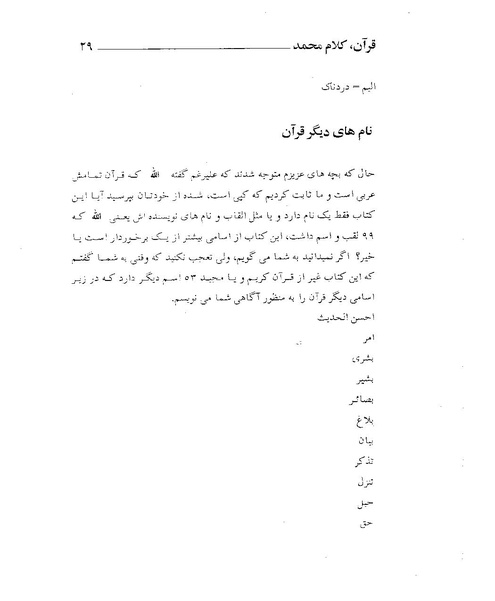 قرآن، کلام محمد ۲۹
الیم = دردناک
نام های دیگر قرآن
حال که بچه های عزیزم متوجه شدند که علیرغم گفته الله که قرآن تمامش
عربی است و ما ثابت کردیم که کپی است، شده از خودتان بپرسید آیا این
کتاب فقط یک نام دارد و یا مثل القاب و نام های نویسنده اش یعنی الله که
۹۹ لقب و اسم داشت، این کتاب از اسامی بیشتر از یک برخوردار است یا
خیر؟ اگر نمیدانید به شما می گویم، ولی تعجب نکنید که وقتی به شما گفتم
که این کتاب غیر از قرآن کریم و یا مجید ۵۳ اسم دیگر دارد که در زیر
اسامی دیگر قرآن را به منظور آگاهی شما می نویسم.
احسن الحدیث
امر
بشری
بشیر
بصائر
بلاغ
بیان
تذکر
تنزل
حبل
حق